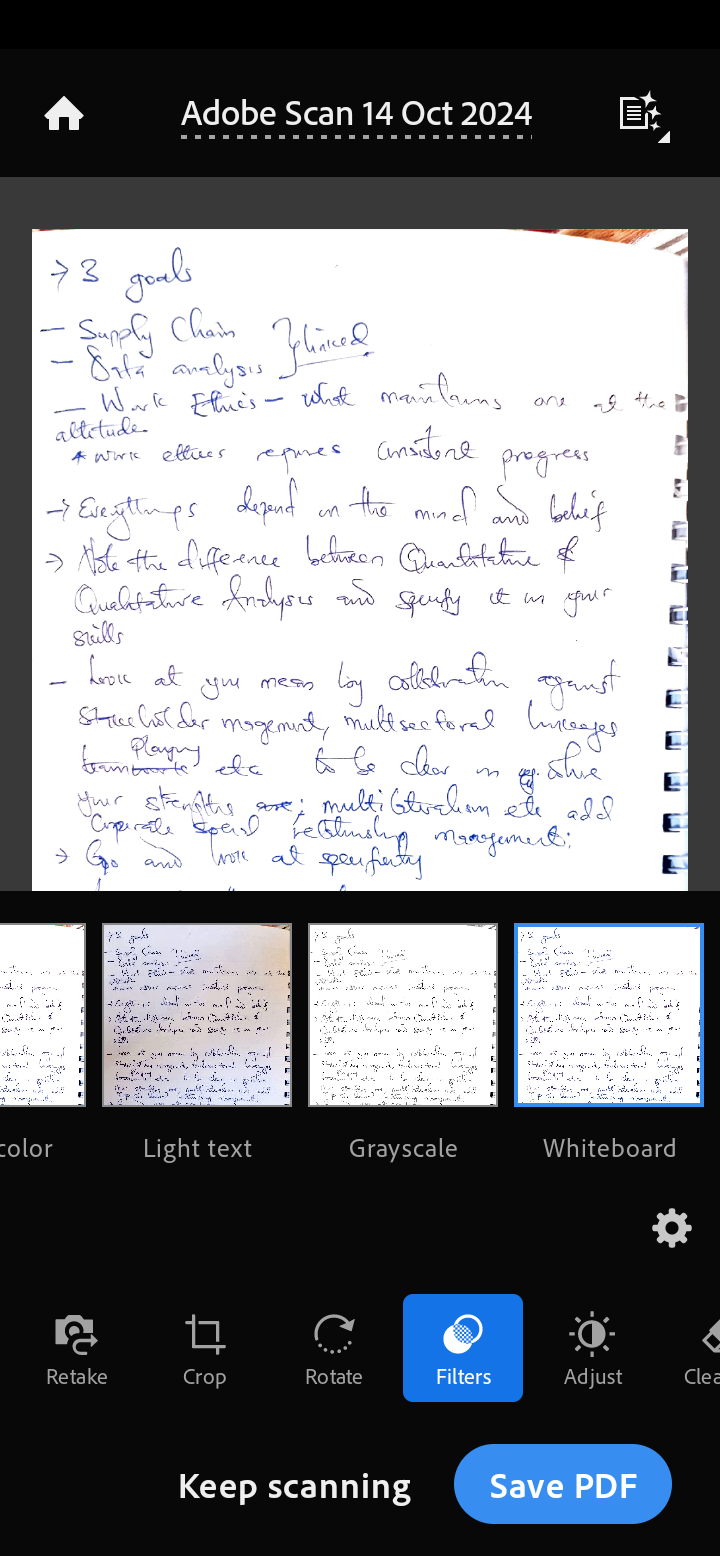 Adobe Scan 14 Oct 2024
→ 3 goals
– Supply Chain
– Data analysis
– Work Ethics – what maintains one at the
altitude
* work ethics requires consistent progress
→ Everythings depend on the mind and belief
→ Note the difference between Quantitative &
Qualitative Analysis and specify it in your
skills
– Look at you mean by collaboration against
Stakeholder mngement, multisectoral linkeages
Playing
etc to be clear in
your strengths ; multilateralism etc add
Corporate relationship management;
→ Go and look at specificity
color
Light text
Grayscale
Whiteboard
Retake
Crop
Rotate
Filters
Adjust
Clea
Keep scanning
Save PDF